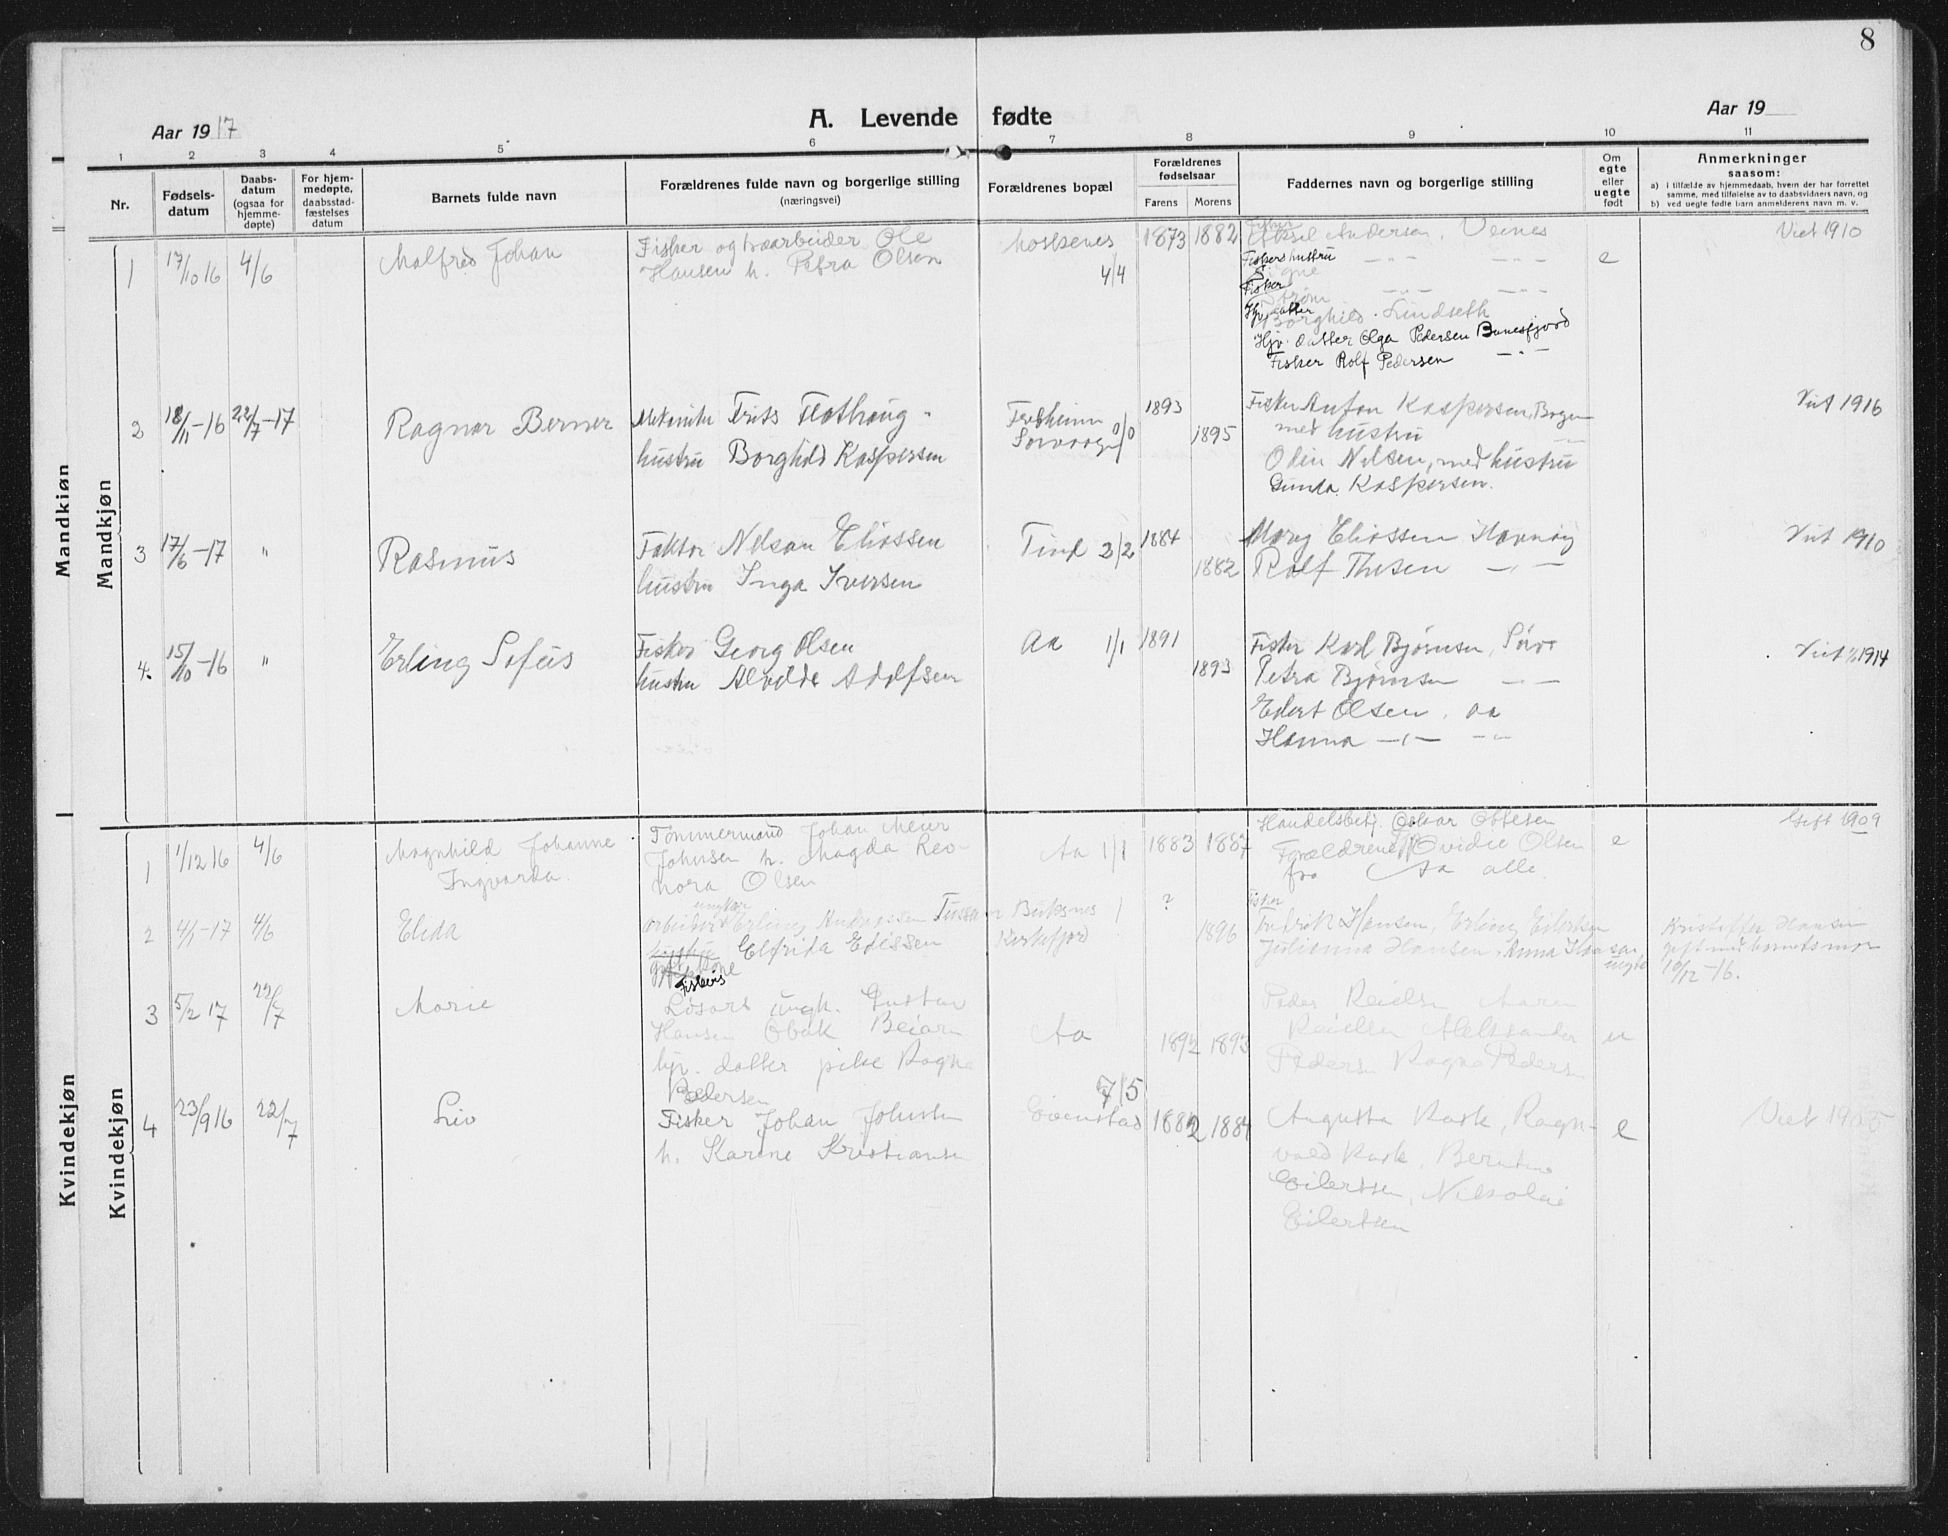 8
Aar 1917
A. Levende fødte
Aar 19
1 2 3 4 5 6 7 8 9 10 11
Nr.
Fødsels-
datum
Daabs-
datum
(ogsaa for
hjemme-
døpte)
For hjem-
medøpte,
daabsstad-
fæstelses
datum
Barnets fulde navn
Forældrenes fulde navn og borgerlige stilling
(næringsvei)
Forældrenes bopæl
Forældrenes
fødselsaar
Farens Morens
Faddernes navn og borgerlige stilling
Om
egte
eller
uegte
født
Anmerkninger
saasom:
a) i tilfælde av hjemmedaab, hvem der har forrettet
samme, med tilføielse av to daabsvidners navn, og
b) ved uegte fødte barn anmelderens navn m. v.
Mandkiøn
Mandkjøn
1 17/10 16 4/6 Malfred Johan
Fisker og træarbeider Ole
Hansen h. Petra Olsen
Moskenes
4/4
1873 1882
Fisker
Aksel Andersen, Veines
Fiskers hustru
Signe
Fisker
Strøm
Borghild Lindseth
Hjv. datter Olga Pedersen Bunesfjord
Fisker Rolf Pedersen
e
Viet 1910
2 18/11-16 22/7-17 Ragnar Berner
Mekaniker Frits Flathaug
hustru Borghild Kaspersen
Sorvaagen 0/0
1893
1895
Fisker Anton Kaspersen,
med hustru
Odin Nilsen, med hustru
Gunda Kaspersen.
Viet 1916
3 17/6-17 " Rasmus
Faktor Nelson Eliassen
hustru Inga Iversen
Tind 2/2
1884
1882
Eliassen Havnøy
Rolf Thesen
Viet 1910
4. 15/10-16 " Erling Sofus
Fisker Georg Olsen
hustru Alvilde Adolfsen
Aa 1/1
1891
1893
Fisker Karl Bjørnsen,
Petra Bjørnsen
Edert Olsen, Aa
Hanna
Viet 1914
Kvindekjøn
Kvindekjøn
1 1/12 16 4/6 Magnhild Johanne
Ingvarda.
Tømmermand Johan Meier
Johnsen h. Magda Leo-
nora Olsen
Aa 1/1
1883 1887
Handelsbetj. Oskar Ottesen
Forældrene Ovidie Olsen
fra Aa alle.
e
Gift 1909
2 4/1-17 4/6 Elida
ungkar
Arbeider Erling
hustru Elfrida Edissen
Buksnes
Kirkefjord
?
1896
Fisker
Fredrik Hansen, Erling Eilertsen
Julianna Hansen, Anna Hansen
uegte
Kristoffer Hansen
gift med barnets mor
10/12-16.
3 5/2 17 22/7 Marie
Løsars ungk. Gustav
Hansen Obak Beiarn
hjv. datter pike Ragna
Pedersen
Aa
1892 1893
Peder Reielsen Maren
Reielsen Aleksander
Pedersen Ragna Pedersen
u
4 23/9 16 22/7 Liv
Fisker Johan Johnsen
h. Karine Kristiansen
7/5
Evenstad
1882 1884
Augusta Rask, Ragn-
vald Rask, Berntine
Eilertsen, Nikolai
Eilertsen
e
Viet 1905